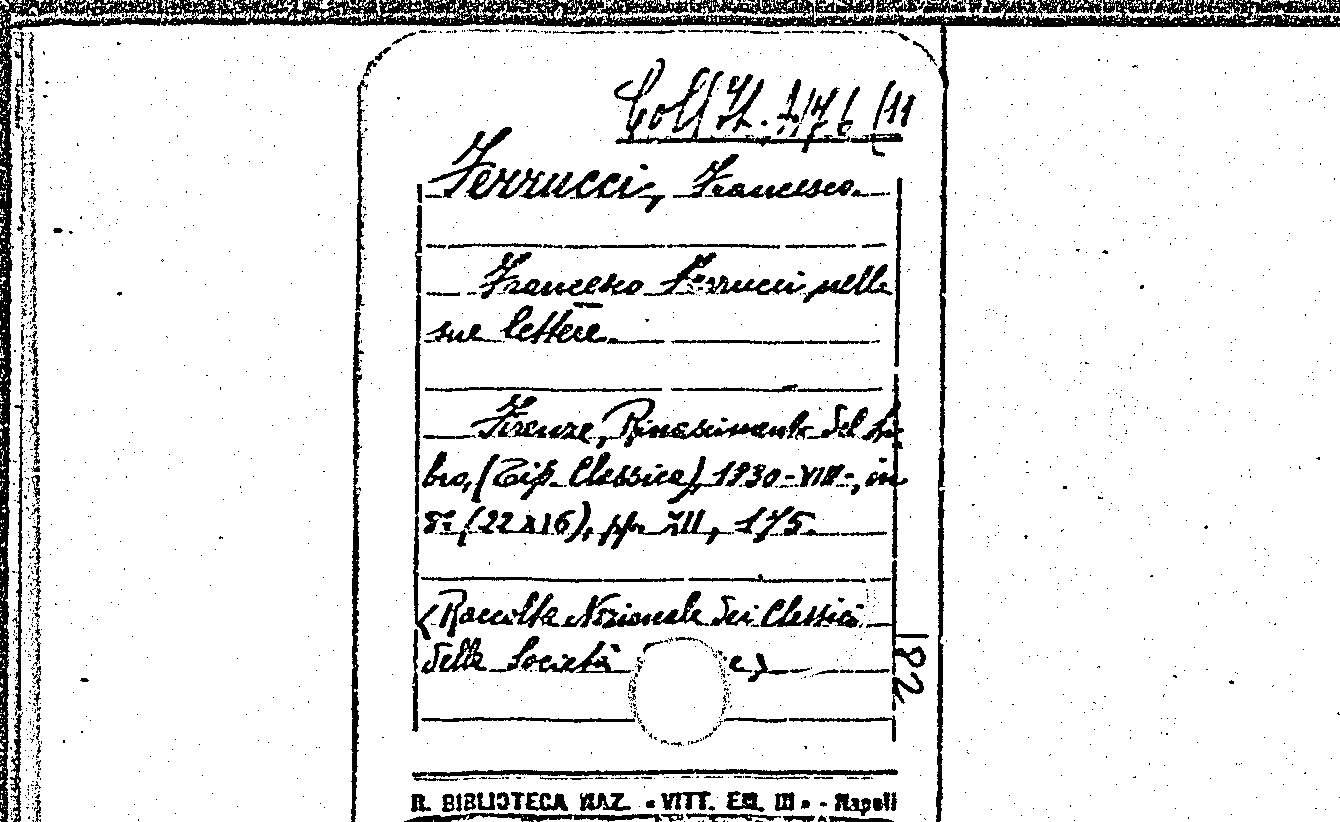 Coll. It. 1/76 (11
Ferrucci, Francesco.
Francesco Ferrucci nelle
sue lettere.
Firenze, Rinascimento del Li-
bro, (Tip. Classica), 1930-VIII-, in
8º (22x16), pp. XII, 175.
(Raccolta Nazionale dei Classici
della Società e)
182
R. BIBLIOTECA NAZ. « VITT. EM. III » - Napoli